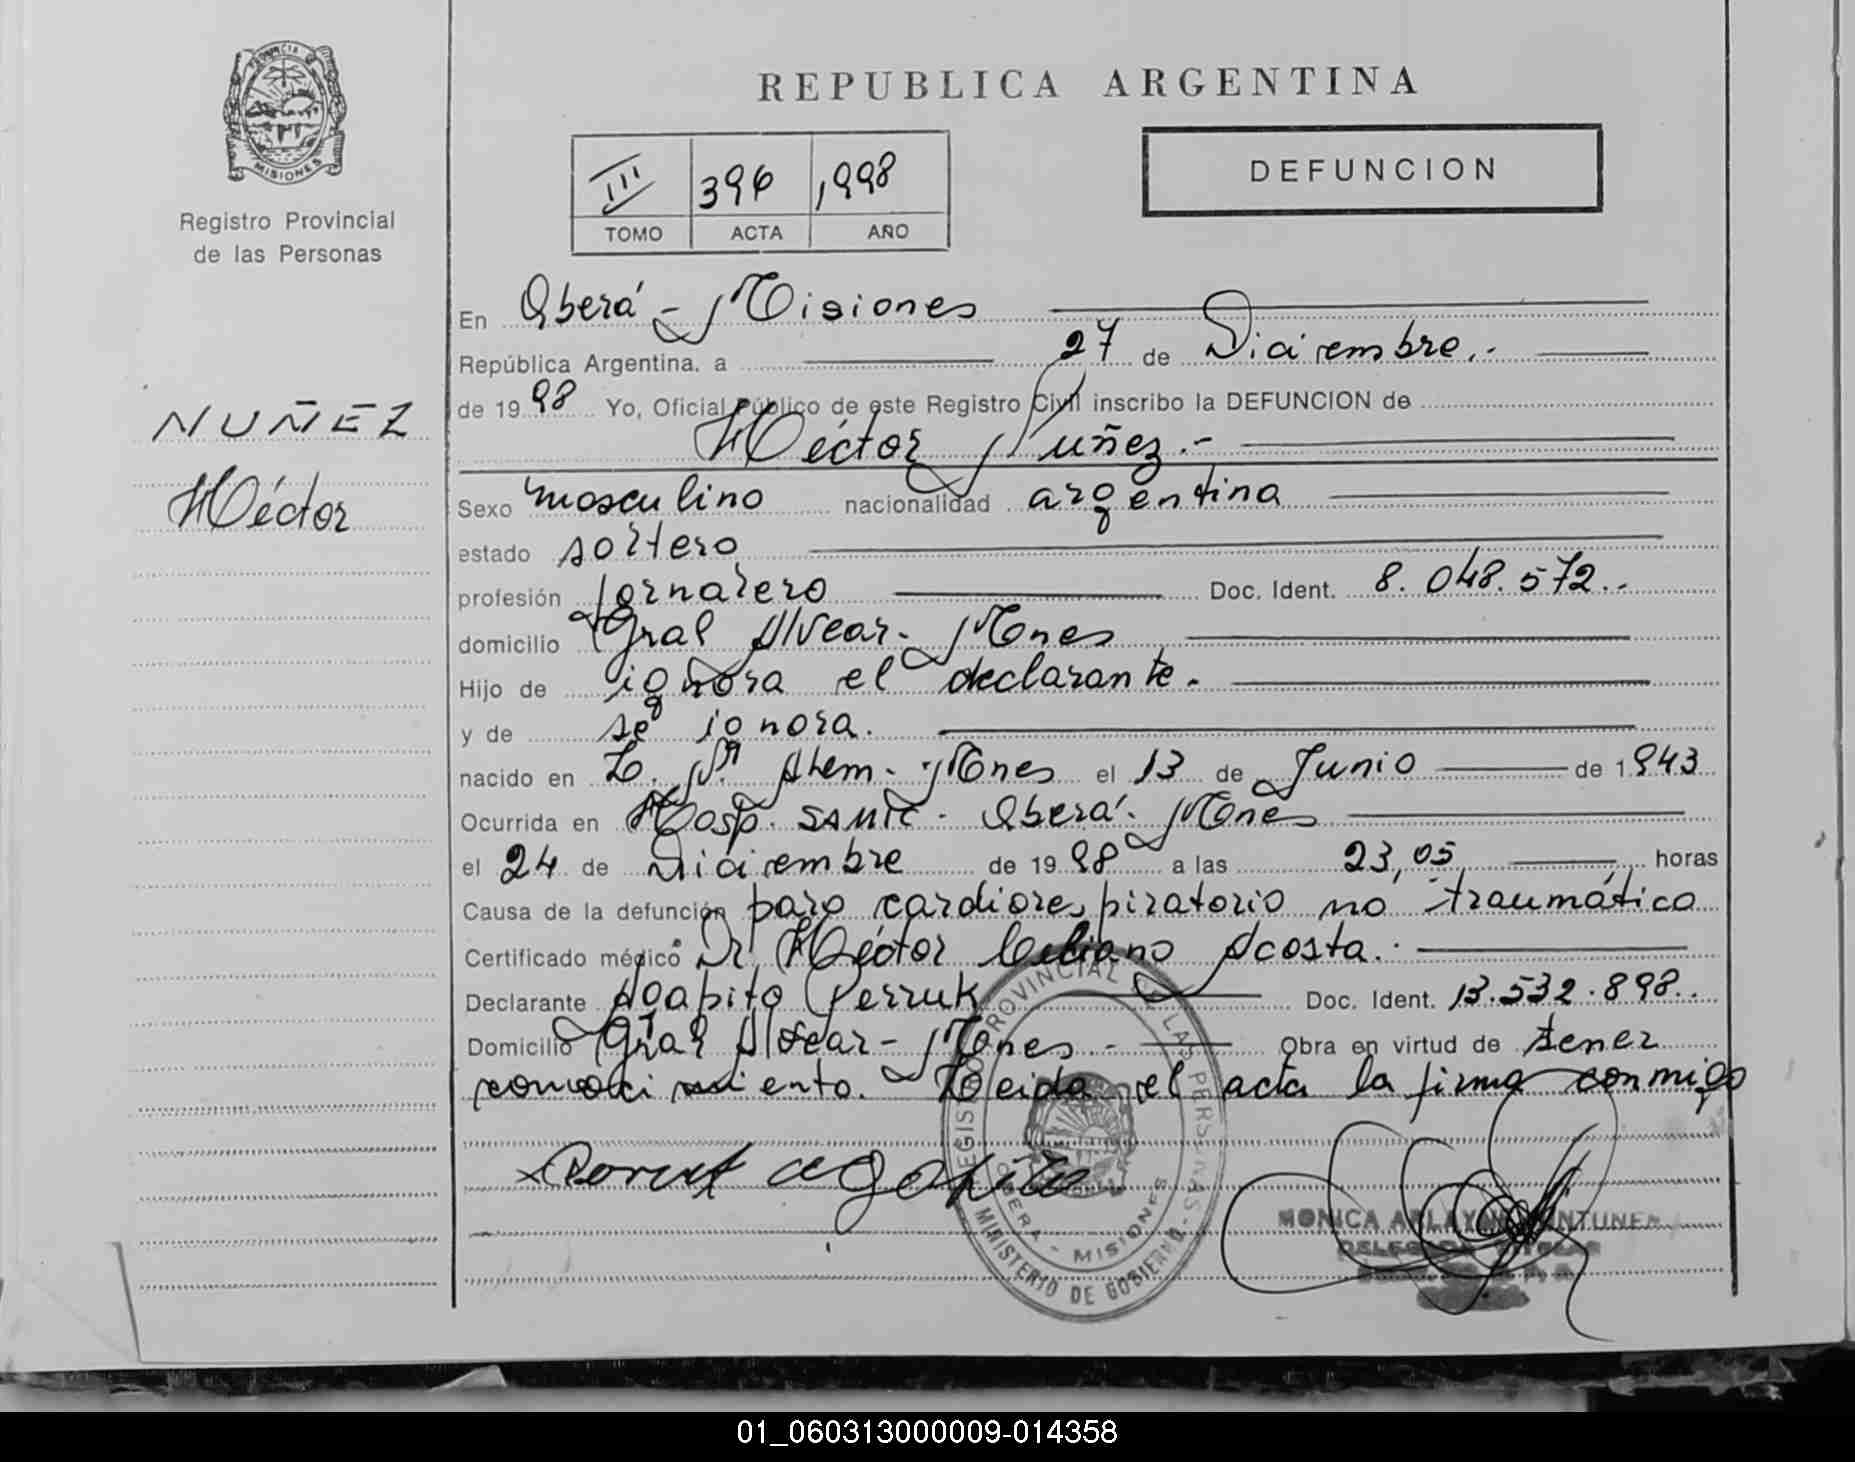 PROVINCIA DE
MISIONES
Registro Provincial
de las Personas
NUÑEZ
Héctor
REPUBLICA ARGENTINA
III 396 1998
TOMO ACTA AÑO
DEFUNCION
En Oberá - Misiones
República Argentina, a 27 de Diciembre.-
de 1998 Yo, Oficial Público de este Registro Civil inscribo la DEFUNCION de
Héctor Nuñez.-
Sexo masculino nacionalidad argentina
estado soltero
profesión Jornalero Doc. Ident. 8.048.572.-
domicilio Gral Alvear - Mnes
Hijo de ignora el declarante.
y de se ignora.
nacido en L. N. Alem - Mnes el 13 de Junio de 1943
Ocurrida en Hosp. SAMIC - Oberá - Mnes
el 24 de Diciembre de 1998 a las 23,05 horas
Causa de la defunción paro cardiorespiratorio no traumático
Certificado médico Dr. Héctor Acosta.
Declarante Agapito Perruk Doc. Ident. 13.532.898.-
Domicilio Gral Alvear - Mnes - Obra en virtud de tener
conocimiento. Leida el acta la firma conmigo
REGISTRO PROVINCIAL DE LAS PERSONAS - MINISTERIO DE GOBIERNO
OBERA - MISIONES
MONICA
01_060313000009-014358